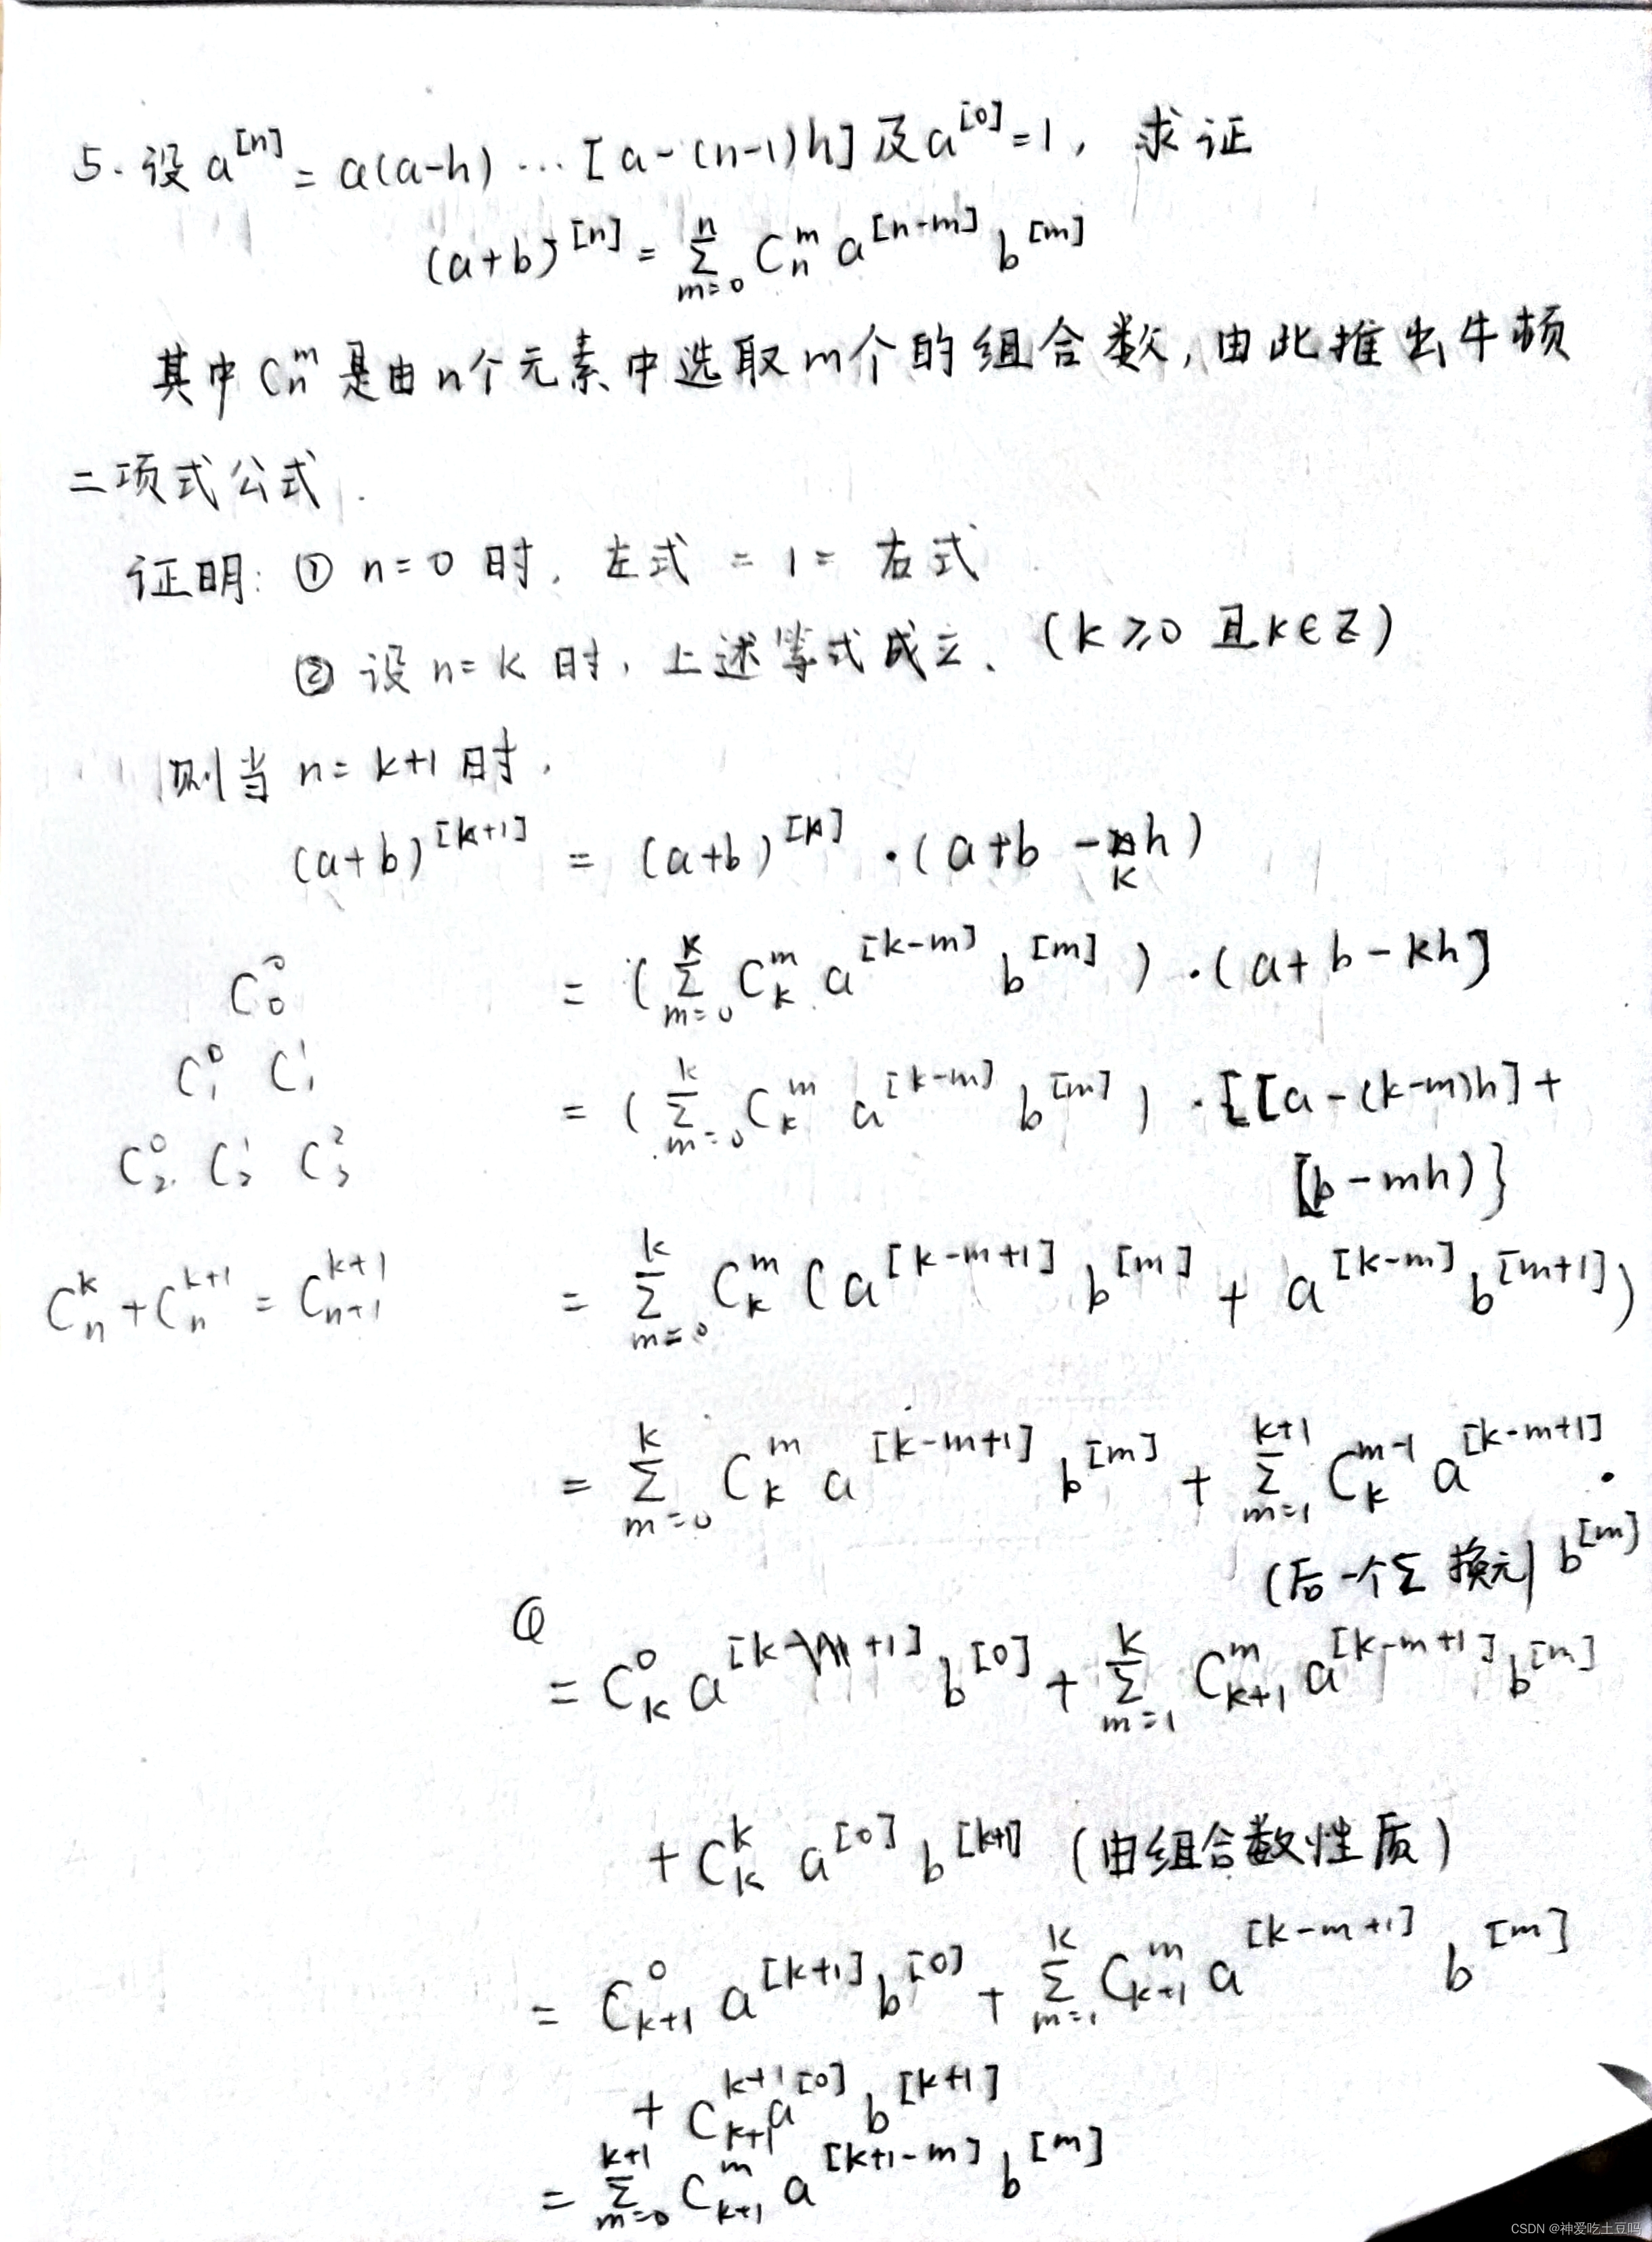 5. 设 a^[n] = a(a-h) … [a-(n-1)h] 及 a^[0] = 1, 求证
(a+b)^[n] = Σ_{m=0}^{n} C_n^m a^[n-m] b^[m]
其中 C_n^m 是由 n个元素中选取 m个的组合数, 由此推出牛顿
二项式公式.
证明: ① n=0 时, 左式 = 1 = 右式
② 设 n=k 时, 上述等式成立、(k≥0 且 k∈Z)
则当 n=k+1 时,
(a+b)^[k+1] = (a+b)^[k] · (a+b-kh)
C_0^0
= (Σ_{m=0}^{k} C_k^m a^[k-m] b^[m]) · (a+b-kh]
C_1^0 C_1^1
= (Σ_{m=0}^{k} C_k^m a^[k-m] b^[m]) · {[a-(k-m)h] +
C_2^0 C_2^1 C_2^2
[b-mh)}
C_n^k + C_n^{k+1} = C_{n+1}^{k+1}
= Σ_{m=0}^{k} C_k^m (a^[k-m+1] b^[m] + a^[k-m] b^[m+1])
= Σ_{m=0}^{k} C_k^m a^[k-m+1] b^[m] + Σ_{m=1}^{k+1} C_k^{m-1} a^[k-m+1] ·
(后一个Σ 换元) b^[m]
= C_k^0 a^[k+1] b^[0] + Σ_{m=1}^{k} C_{k+1}^m a^[k-m+1] b^[m]
+ C_k^k a^[0] b^[k+1] (由组合数性质)
= C_{k+1}^0 a^[k+1] b^[0] + Σ_{m=1}^{k} C_{k+1}^m a^[k-m+1] b^[m]
+ C_{k+1}^{k+1} a^[0] b^[k+1]
= Σ_{m=0}^{k+1} C_{k+1}^m a^[k+1-m] b^[m]
CSDN @神爱吃土豆吗